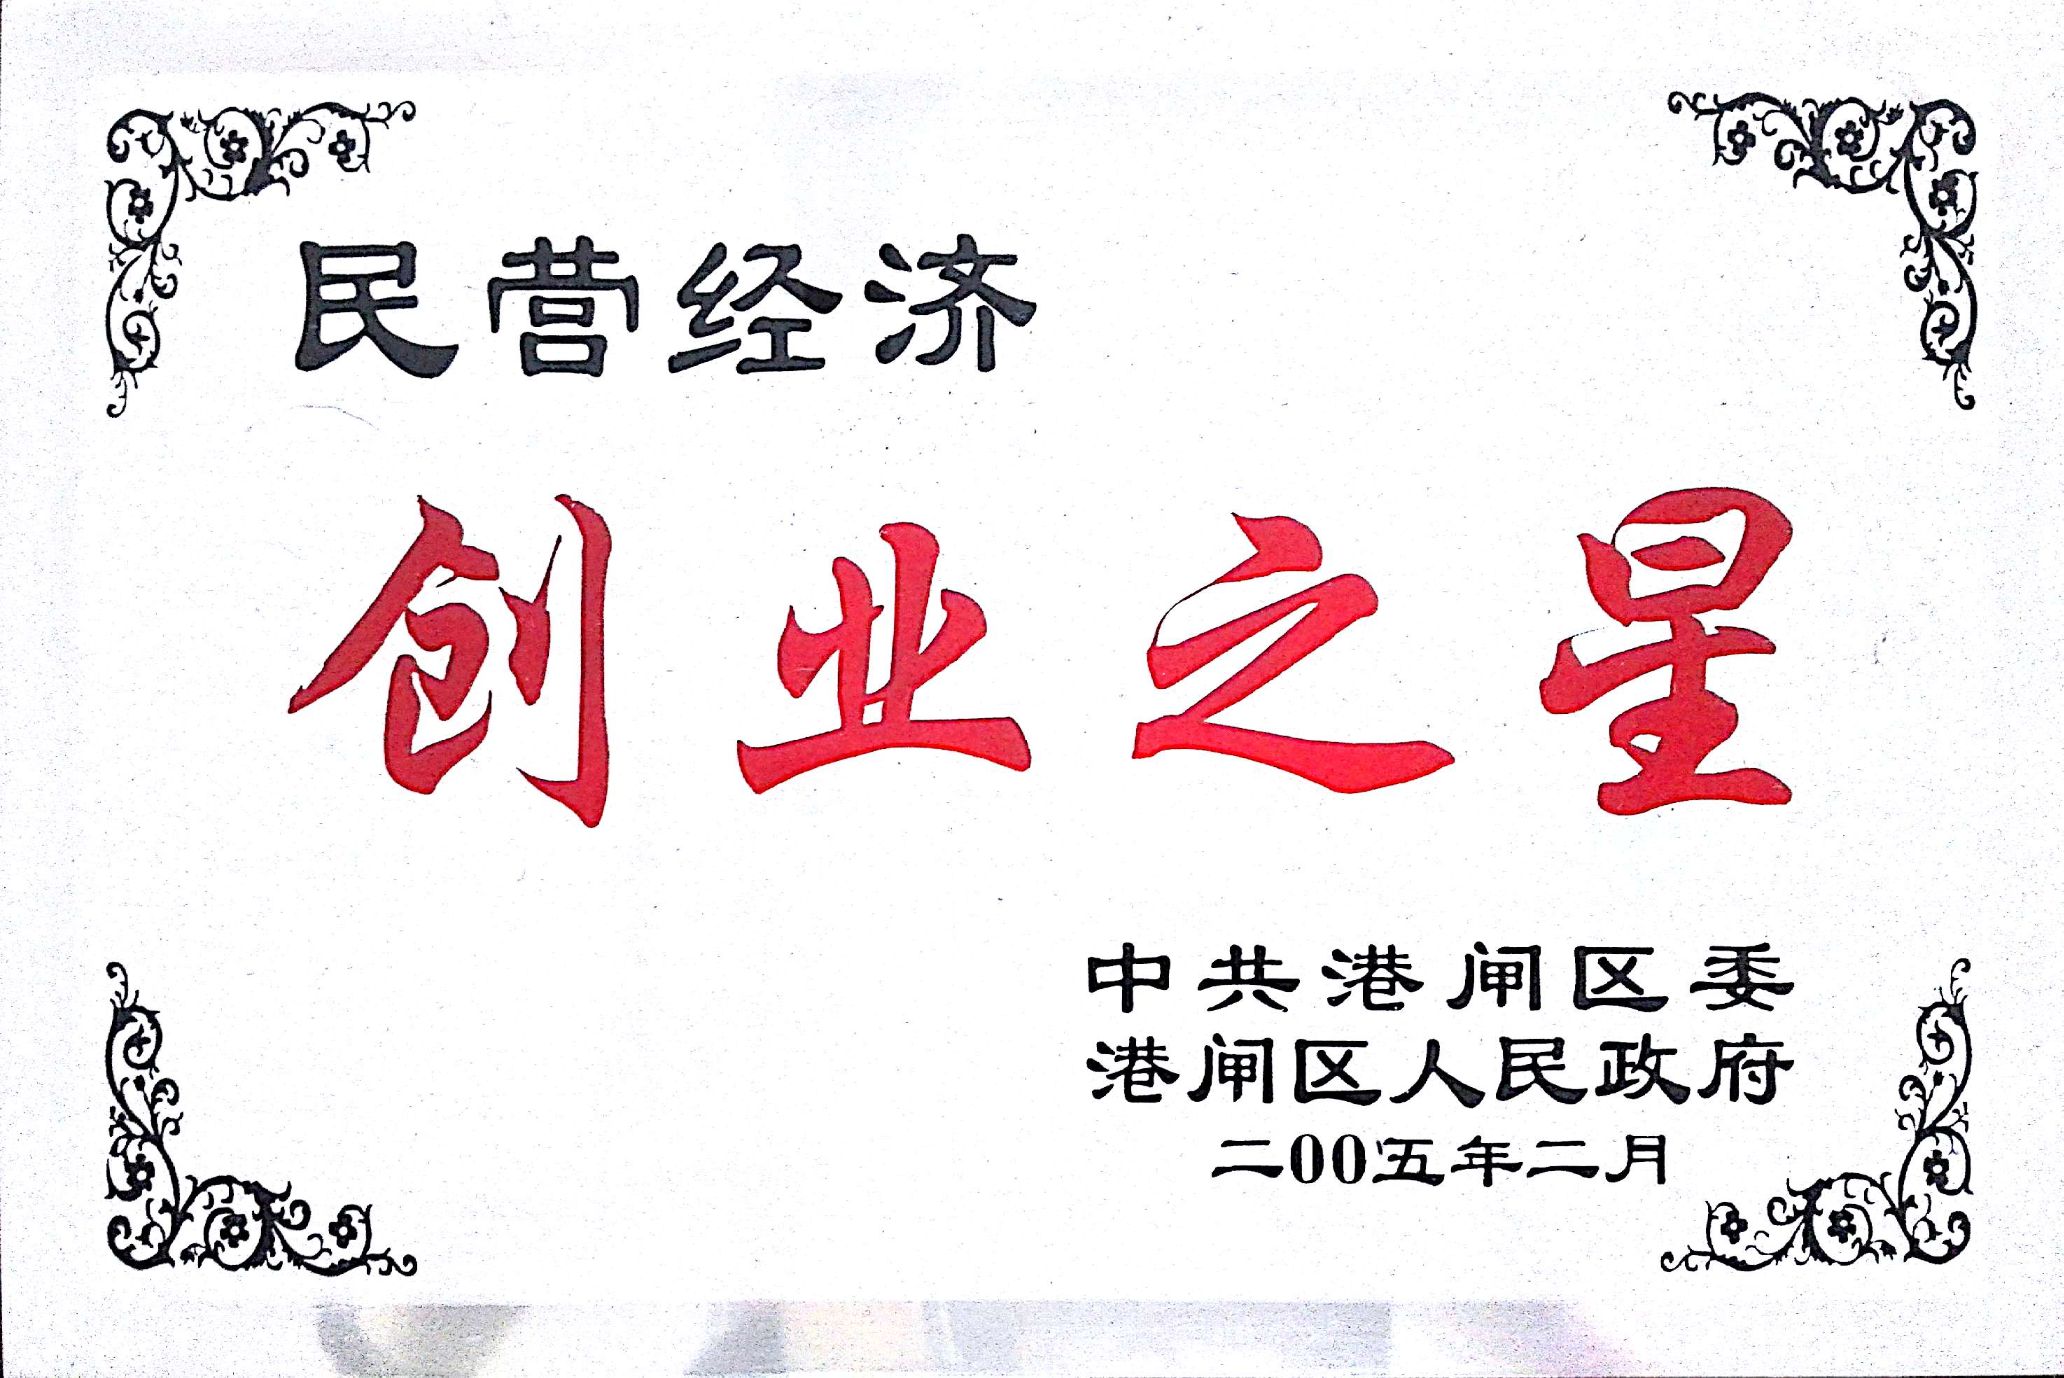 民营经济
创业之星
中共港闸区委
港闸区人民政府
二00五年二月